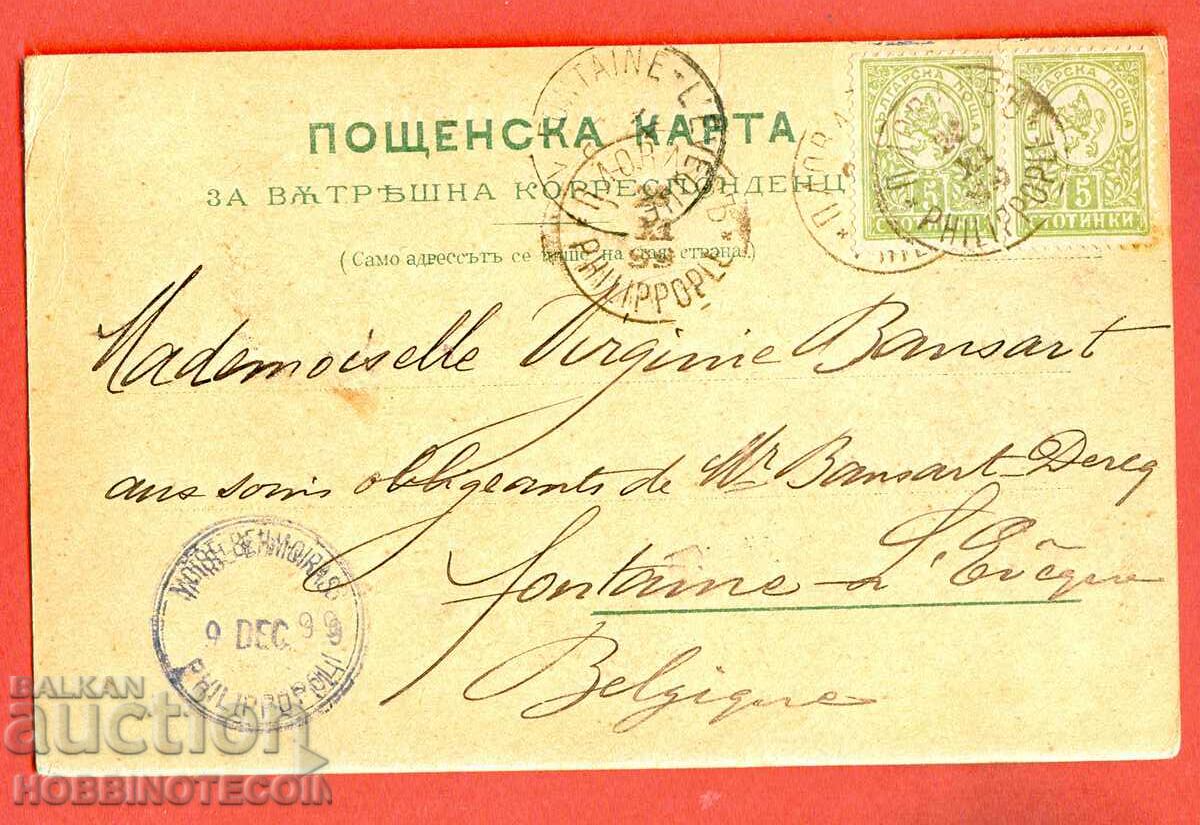 ПОЩЕНСКА КАРТА
ЗА ВѪТРѢШНА КОРРЕСПОНДЕНЦ
(Само адрессътъ се пише на тая страна.)
БЪЛГАРСКА ПОЩА
5
СТОТИНКИ
БЪЛГАРСКА ПОЩА
5
СТОТИНКИ
FONTAINE-L'EVEQUE
PHILIPPOPLE
PHILIPPOPLI
Mademoiselle Virginie Bansart
aux soins obligeants de Mr Bansart-Dereq
Fontaine-L'Évêque
Belgique
9 DEC. 99
PHILIPPOPOLI
BALKAN
auction
HOBBINOTECOIN